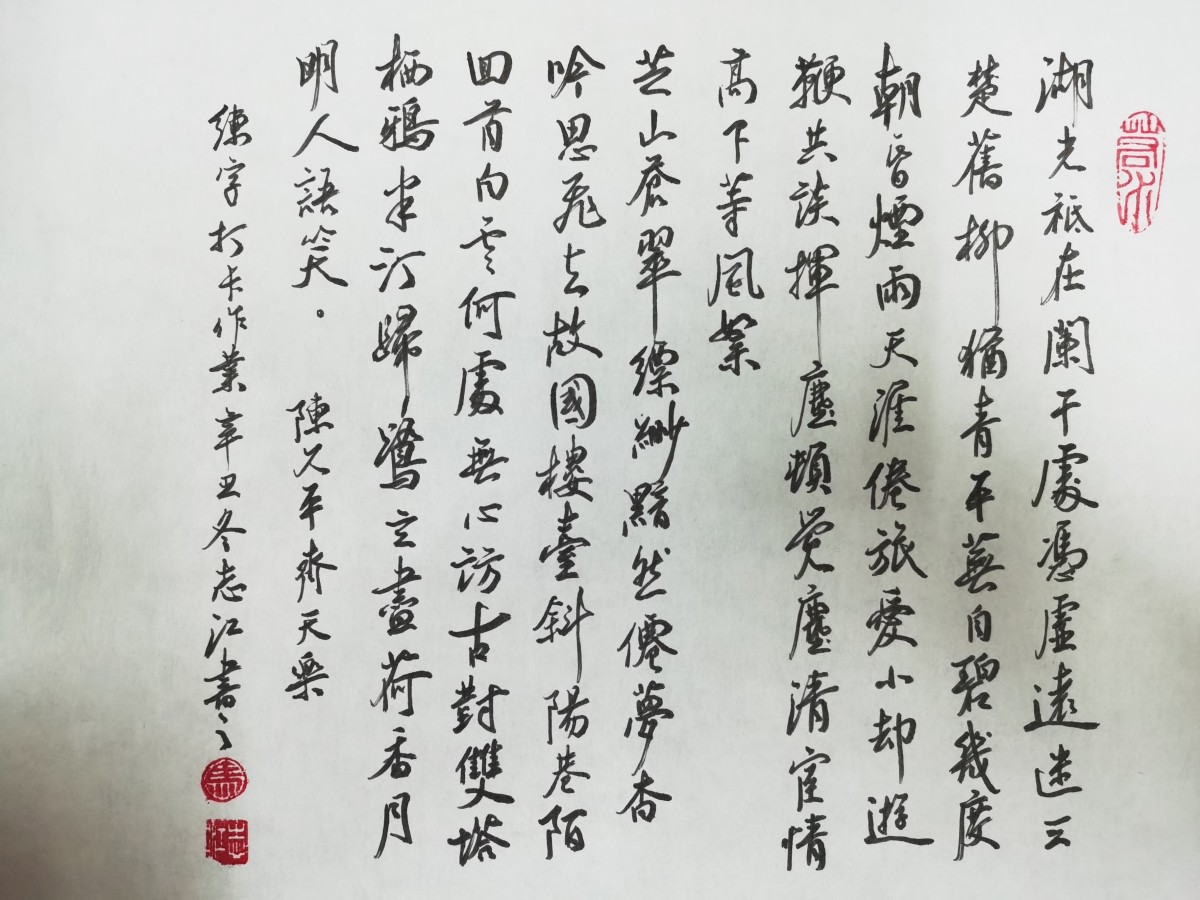 湖光祗在闌干處憑虛遠迷三
楚舊柳猶青平蕪自碧幾度
朝昏煙雨天涯倦旅愛小却遊
鞭共談揮麈頓覺塵清宦情
高下等風絮
芝山蒼翠縹緲黯然僊夢杳
吟思飛去故國樓臺斜陽巷陌
回首白云何處無心訪古對雙塔
栖鴉半汀歸鷺立盡荷香月
明人語笑。 陳允平齊天樂
練字打卡作業辛丑冬志江書
馬
志江